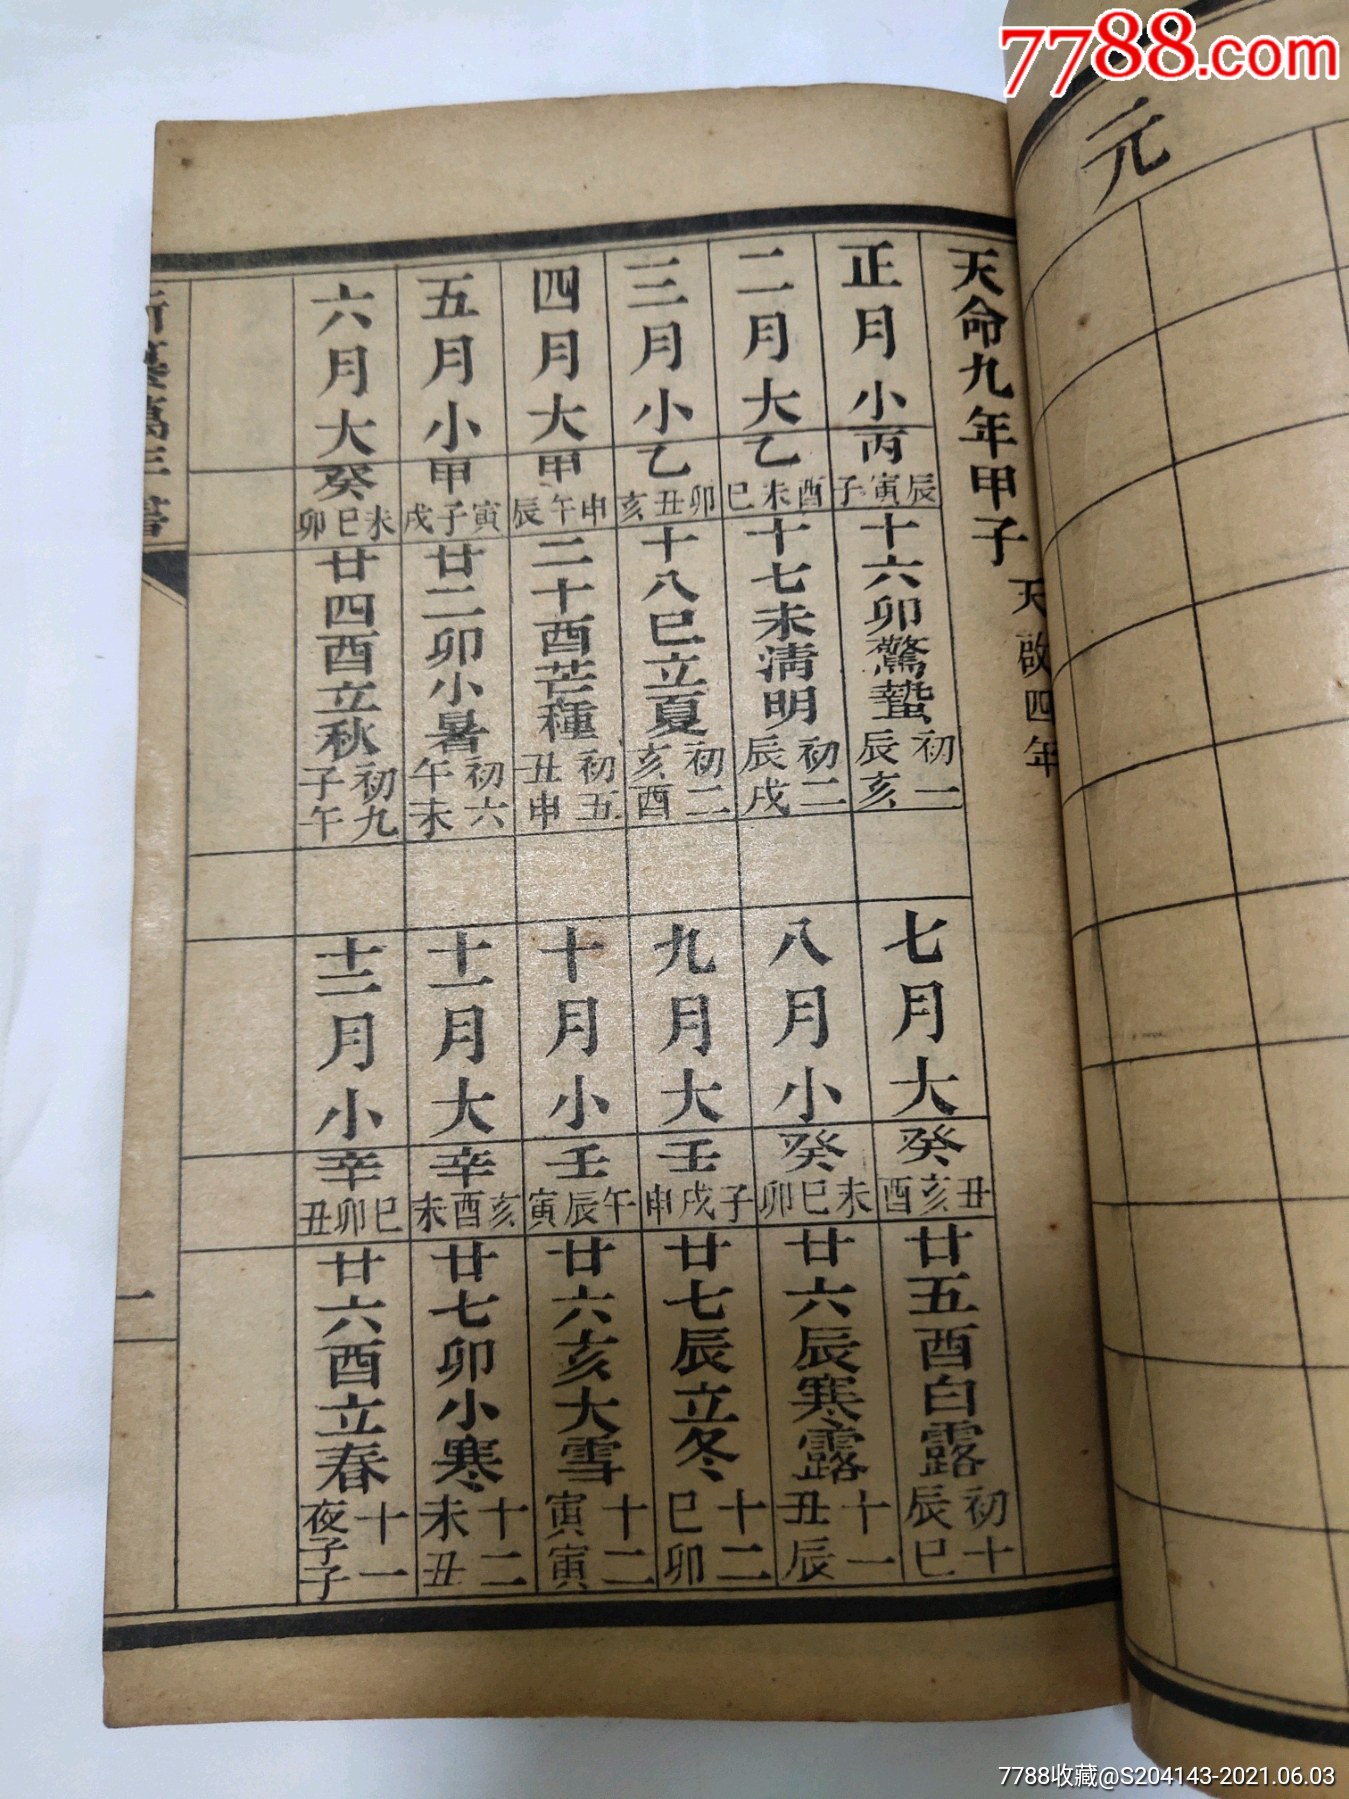 7788.com
元
天命九年甲子 天啟四年
正月小丙辰寅子十六卯驚蟄初一辰亥
二月大乙酉未巳十七未清明初二辰戌
三月小乙卯丑亥十八巳立夏初二亥酉
四月大甲申午辰二十酉芒種初五丑申
五月小甲寅子戌廿二卯小暑初六午未
六月大癸未巳卯廿四酉立秋初九子午
七月大癸丑亥酉廿五酉白露初十辰巳
八月小癸未巳卯廿六辰寒露十一丑辰
九月大壬子戌申廿七辰立冬十二巳卯
十月小壬午辰寅廿六亥大雪十二寅寅
十一月大辛亥酉未廿七卯小寒十二未丑
十二月小辛巳卯丑廿六酉立春十一夜子子
萬年書
一
7788收藏@S204143-2021.06.03